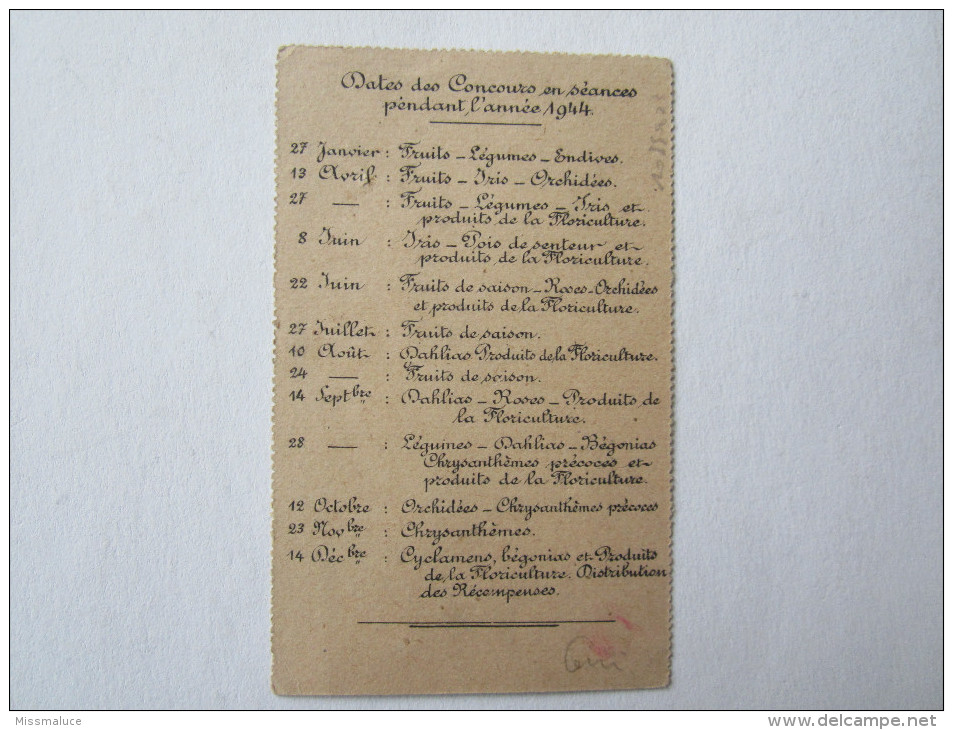 Dates des Concours en séances
pendant l'année 1944.
27 Janvier : Fruits - Légumes - Endives.
13 Avril : Fruits - Iris - Orchidées.
27 — : Fruits - Légumes - Iris et
produits de la Floriculture.
8 Juin : Iris - Pois de senteur et
produits de la Floriculture.
22 Juin : Fruits de saison - Roses - Orchidées
et produits de la Floriculture.
27 Juillet : Fruits de saison.
10 Août : Dahlias Produits de la Floriculture.
24 — : Fruits de saison.
14 Septbre : Dahlias - Roses - Produits de
la Floriculture.
28 — : Légumes - Dahlias - Bégonias
Chrysanthèmes précoces et
produits de la Floriculture.
12 Octobre : Orchidées - Chrysanthèmes précoces
23 Novbre : Chrysanthèmes.
14 Décbre : Cyclamens, bégonias et Produits
de la Floriculture. Distribution
des Récompenses.
Missmaluce
delcampe.net